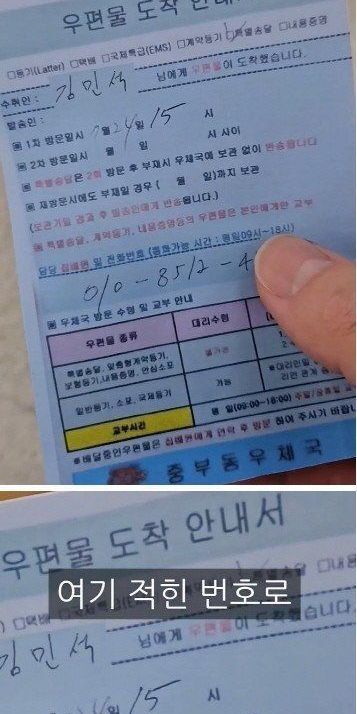 우편물 도착 안내서
□등기(Latter) □택배 □국제특급(EMS) □계약등기 ☑특별송달 □내용증명
수취인 : 김민석 님에게 우편물이 도착했습니다.
발송인 :
▣ 1차 방문일시 7월 24일 15 시
▣ 2차 방문일시 월 일 시 사이
▣ 특별송달은 2회 방문 후 부재시 우체국에 보관 없이 반송됩니다
▣ 재방문시에도 부재일 경우 ( 월 일)까지 보관
(보관기일 경과 후 발송인에게 반송됩니다.)
▣ 특별송달, 계약등기, 내용증명등의 우편물은 본인에게만 교부
담당 집배원 및 전화번호 (통화가능 시간 : 평일09시~18시)
010-8512-4
▣ 우체국 방문 수령 및 교부 안내
우편물 종류 대리수령
특별송달, 맞춤형계약등기, 보험등기,내용증명, 안심소포 불가능
일반등기, 소포, 국제등기 가능
교부시간 평 일(09:00~18:00)
※배달중인우편물은 집배원에게 연락 후 방문 하여 주시기 바랍
중부동우체국
우편물 도착 안내서
□택배 □국제특급(E 특별송달 □내용
여기 적힌 번호로
김민석 님에게 우편물이 도착했습니다.
24일 15 시